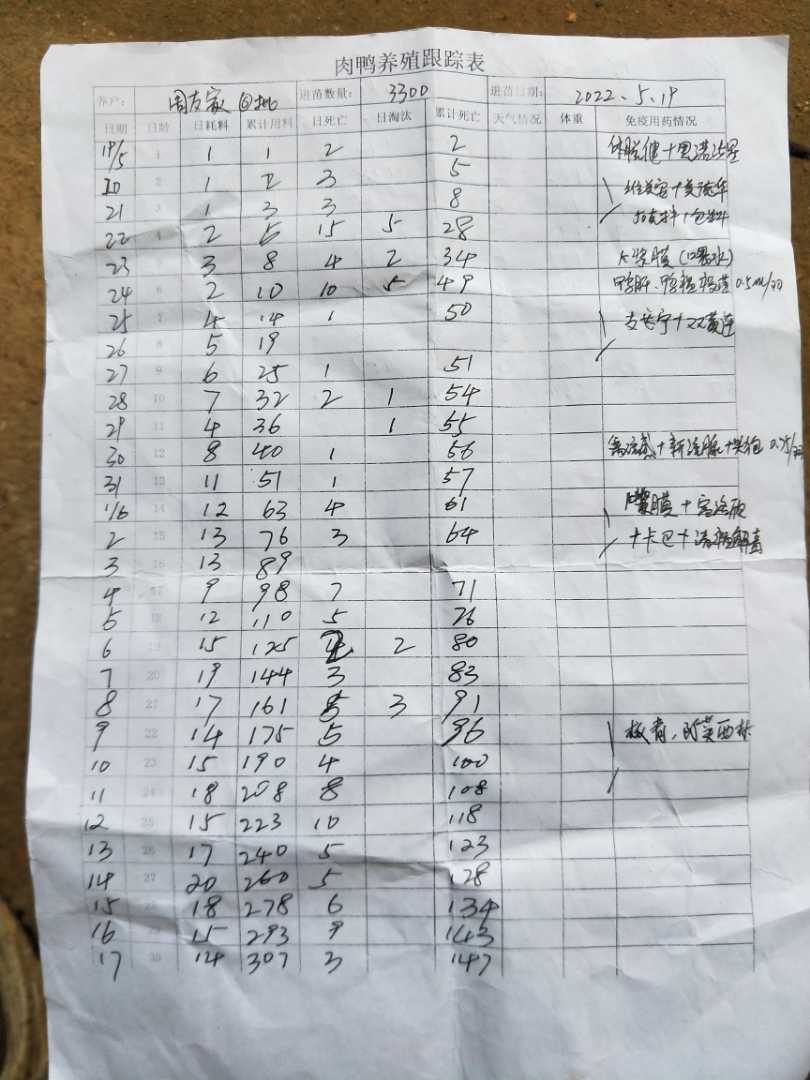 肉鸭养殖跟踪表
养户: 周友家 进苗数量: 3300 进苗日期: 2022.5.19
日期 日龄 日耗料 累计用料 日死亡 日淘汰 累计死亡 天气情况 体重 免疫用药情况
19/5 1 1 1 2 2
20 2 1 2 3 5
21 3 1 3 3 8
22 4 2 5 15 5 28
23 5 3 8 4 2 34
24 6 2 10 10 5 49 0.5ml/羽
25 7 4 14 1 50
26 8 5 19
27 9 6 25 1 51
28 10 7 32 2 1 54
29 11 4 36 1 55
30 12 8 40 1 56
31 13 11 51 1 57
1/6 14 12 63 4 61
2 15 13 76 3 64
3 16 13 89
4 17 9 98 7 71
5 18 12 110 5 76
6 19 15 125 2 2 80
7 20 19 144 3 83
8 21 17 161 5 3 91
9 22 14 175 5 96 板青,阿莫西林
10 23 15 190 4 100
11 24 18 208 8 108
12 25 15 223 10 118
13 26 17 240 5 123
14 27 20 260 5 128
15 28 18 278 6 134
16 29 15 293 9 143
17 30 14 307 3 147